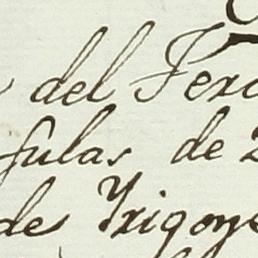 del Terc
sulas de 2
de Yrigoye